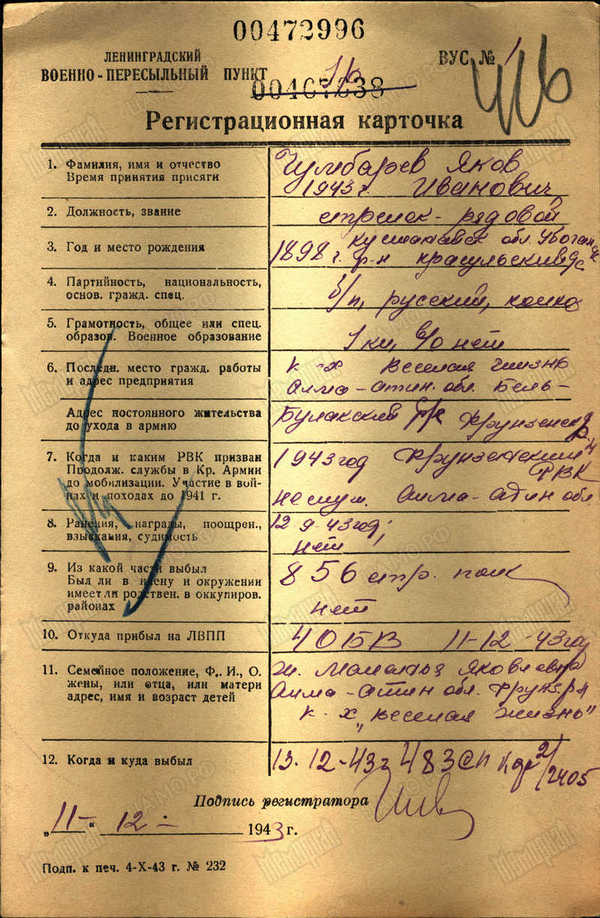 00472996
ЛЕНИНГРАДСКИЙ
ВОЕННО-ПЕРЕСЫЛЬНЫЙ ПУНКТ
16
ВУС № 1
416
00467238
Регистрационная карточка
1. Фамилия, имя и отчество
Время принятия присяги
Чумбарев Яков
1943 г. Иванович
2. Должность, звание
стрелок-рядовой
3. Год и место рождения
обл. Убоган
1898 г. р-н
4. Партийность, национальность,
основ. гражд. спец.
б/п, русский,
5. Грамотность, общее или спец.
образов. Военное образование
1 кл, в/о нет
6. Последн. место гражд. работы
и адрес предприятия
к-х веселая жизнь
Алма-Атин. обл.
Адрес постоянного жительства
до ухода в армию
7. Когда и каким РВК призван
Продолж. службы в Кр. Армии
до мобилизации. Участие в вой-
нах и походах до 1941 г.
1943 год Фрунзенский
РВК
Алма-Атин обл.
8. Ранения, награды, поощрен.,
взыскания, судимость
12-9-43 год,
нет
9. Из какой части выбыл
Был ли в плену и окружении
имеет ли родствен. в оккупиров.
районах
856 стр. полк
нет
10. Откуда прибыл на ЛВПП
40 БВ 11-12-43 год
11. Семейное положение, Ф., И., О.
жены, или отца, или матери
адрес, имя и возраст детей
ж. Яковлевна
Алма-Атин обл. Фрунз р-н
к. х „веселая жизнь"
12. Когда и куда выбыл
13. 12-43 г 483 СП
2/2405
Подпись регистратора
„11-" 12- 1943 г.
Подп. к печ. 4-X-43 г. № 232